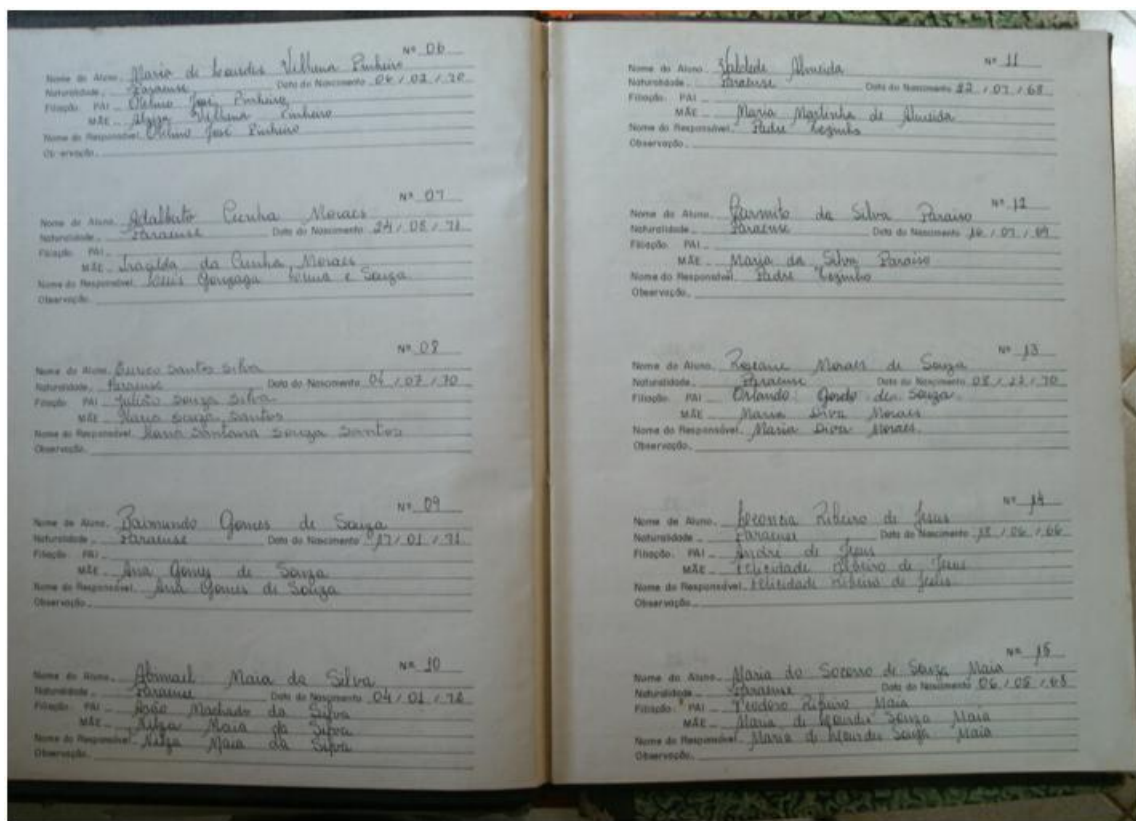 Nº 06
Nome do Aluno Maria de Lourdes Vilhena Pinheiro
Naturalidade Paraense Data do Nascimento 04 / 02 / 70
Filiação PAI José Pinheiro
MÃE Vilhena Pinheiro
Nome do Responsável José Pinheiro
Observação
Nº 07
Nome do Aluno Adalberto Cunha Moraes
Naturalidade Paraense Data do Nascimento 24 / 08 / 71
Filiação PAI
MÃE Iracilda da Cunha Moraes
Nome do Responsável Luis Gonzaga e Souza
Observação
Nº 08
Nome do Aluno Eurico Santos Silva
Naturalidade Paraense Data do Nascimento 04 / 07 / 70
Filiação PAI Julião Souza Silva
MÃE Maria Souza Santos
Nome do Responsável Maria Santana Souza Santos
Observação
Nº 09
Nome do Aluno Raimundo Gomes de Souza
Naturalidade Paraense Data do Nascimento 17 / 01 / 71
Filiação PAI
MÃE Ana Gomes de Souza
Nome do Responsável Ana Gomes de Souza
Observação
Nº 10
Nome do Aluno Abimael Maia da Silva
Naturalidade Paraense Data do Nascimento 04 / 01 / 72
Filiação PAI João Machado da Silva
MÃE Nilza Maia da Silva
Nome do Responsável Nilza Maia da Silva
Observação
Nº 11
Nome do Aluno Almeida
Naturalidade Paraense Data do Nascimento 22 / 07 / 68
Filiação PAI
MÃE Maria Martinha de Almeida
Nome do Responsável Padre
Observação
Nº 12
Nome do Aluno da Silva Paraiso
Naturalidade Paraense Data do Nascimento 16 / 07 / 69
Filiação PAI
MÃE Maria da Silva Paraiso
Nome do Responsável Padre
Observação
Nº 13
Nome do Aluno Moraes de Souza
Naturalidade Paraense Data do Nascimento 08 / 12 / 70
Filiação PAI Orlando de Souza
MÃE Maria Diva Moraes
Nome do Responsável Maria Diva Moraes
Observação
Nº 14
Nome do Aluno Ribeiro de Jesus
Naturalidade Paraense Data do Nascimento 18 / 06 / 66
Filiação PAI André de Jesus
MÃE Felicidade Ribeiro de Jesus
Nome do Responsável Felicidade Ribeiro de Jesus
Observação
Nº 15
Nome do Aluno Maria do Socorro de Souza Maia
Naturalidade Paraense Data do Nascimento 06 / 08 / 68
Filiação PAI Teodoro Ribeiro Maia
MÃE Maria de Lourdes Souza Maia
Nome do Responsável Maria de Lourdes Souza Maia
Observação